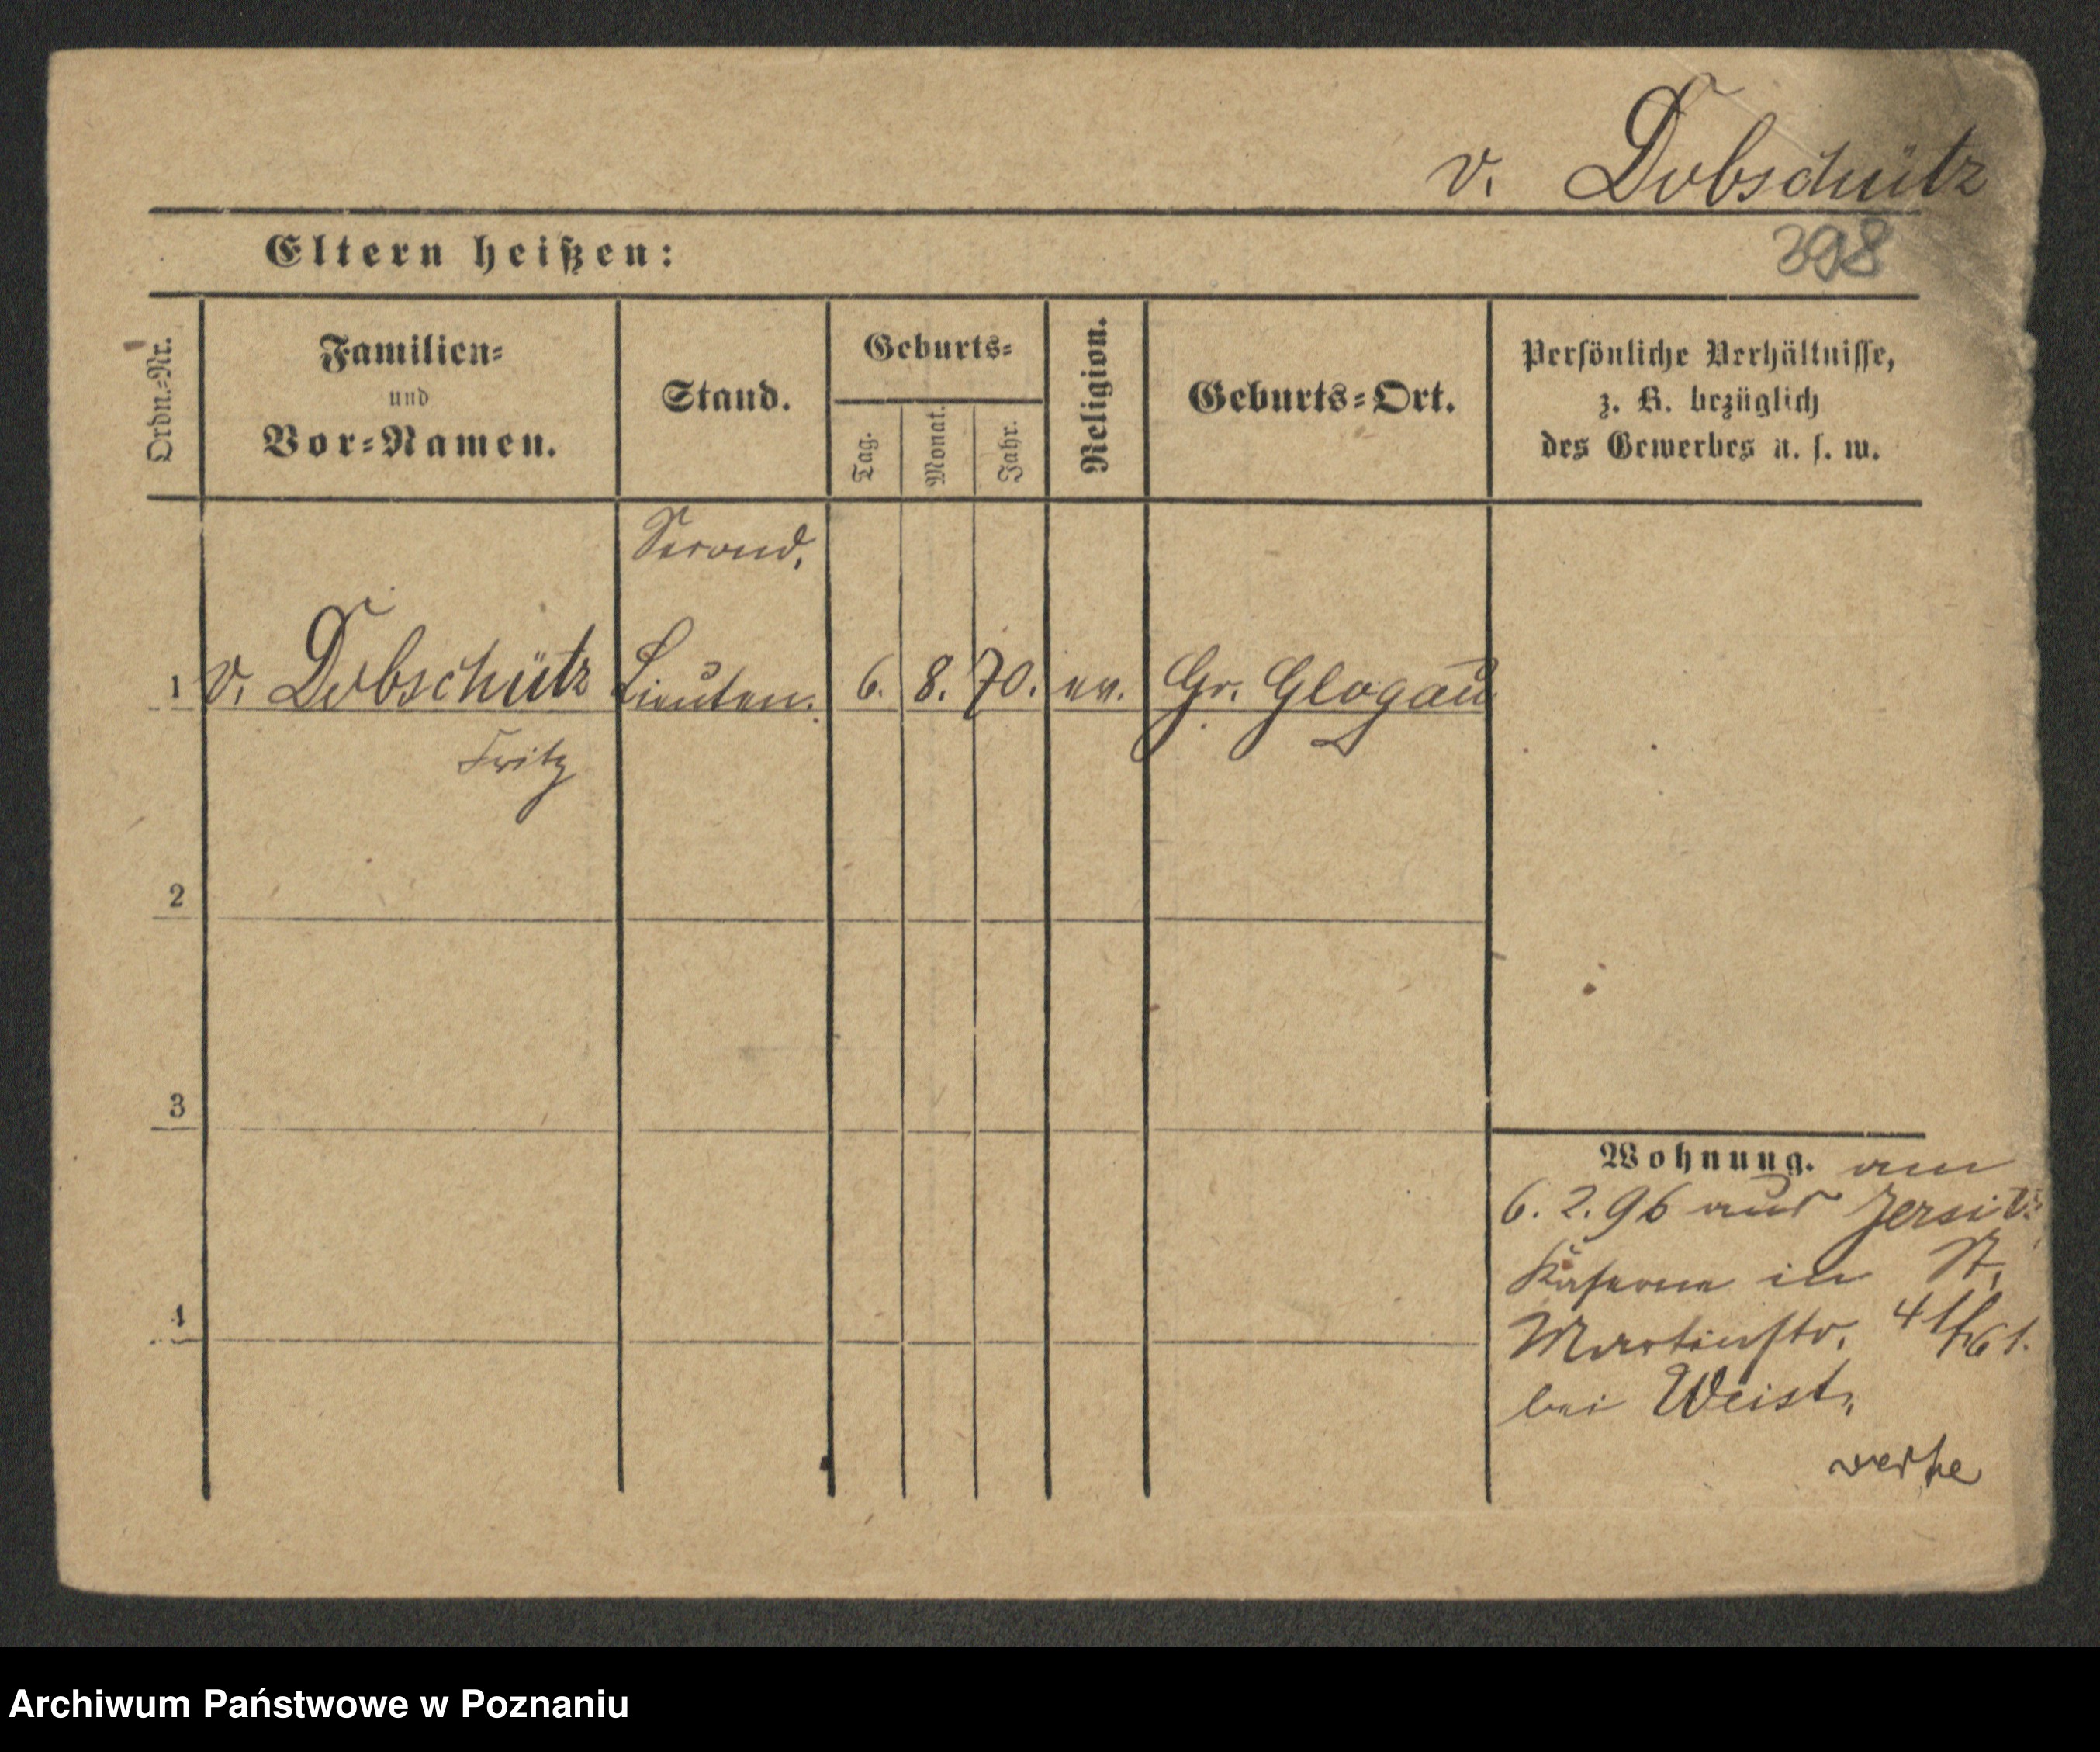 v. Dobschütz
Eltern heißen:
398
Ordn.-Nr.
Familien-
und
Vor-Namen.
Stand.
Geburts-
Tag.
Monat.
Jahr.
Religion.
Geburts-Ort.
Persönliche Verhältnisse,
z. B. bezüglich
des Gewerbes u. s. w.
Second.
1 v. Dobschütz Lieuten. 6. 8. 70. ev. Gr. Glogau
Fritz
2
3
4
Wohnung. am
6. 2. 96 aus Jersitz
Kaserne in St.
Martinstr. 41/
bei Weist,
Archiwum Państwowe w Poznaniu